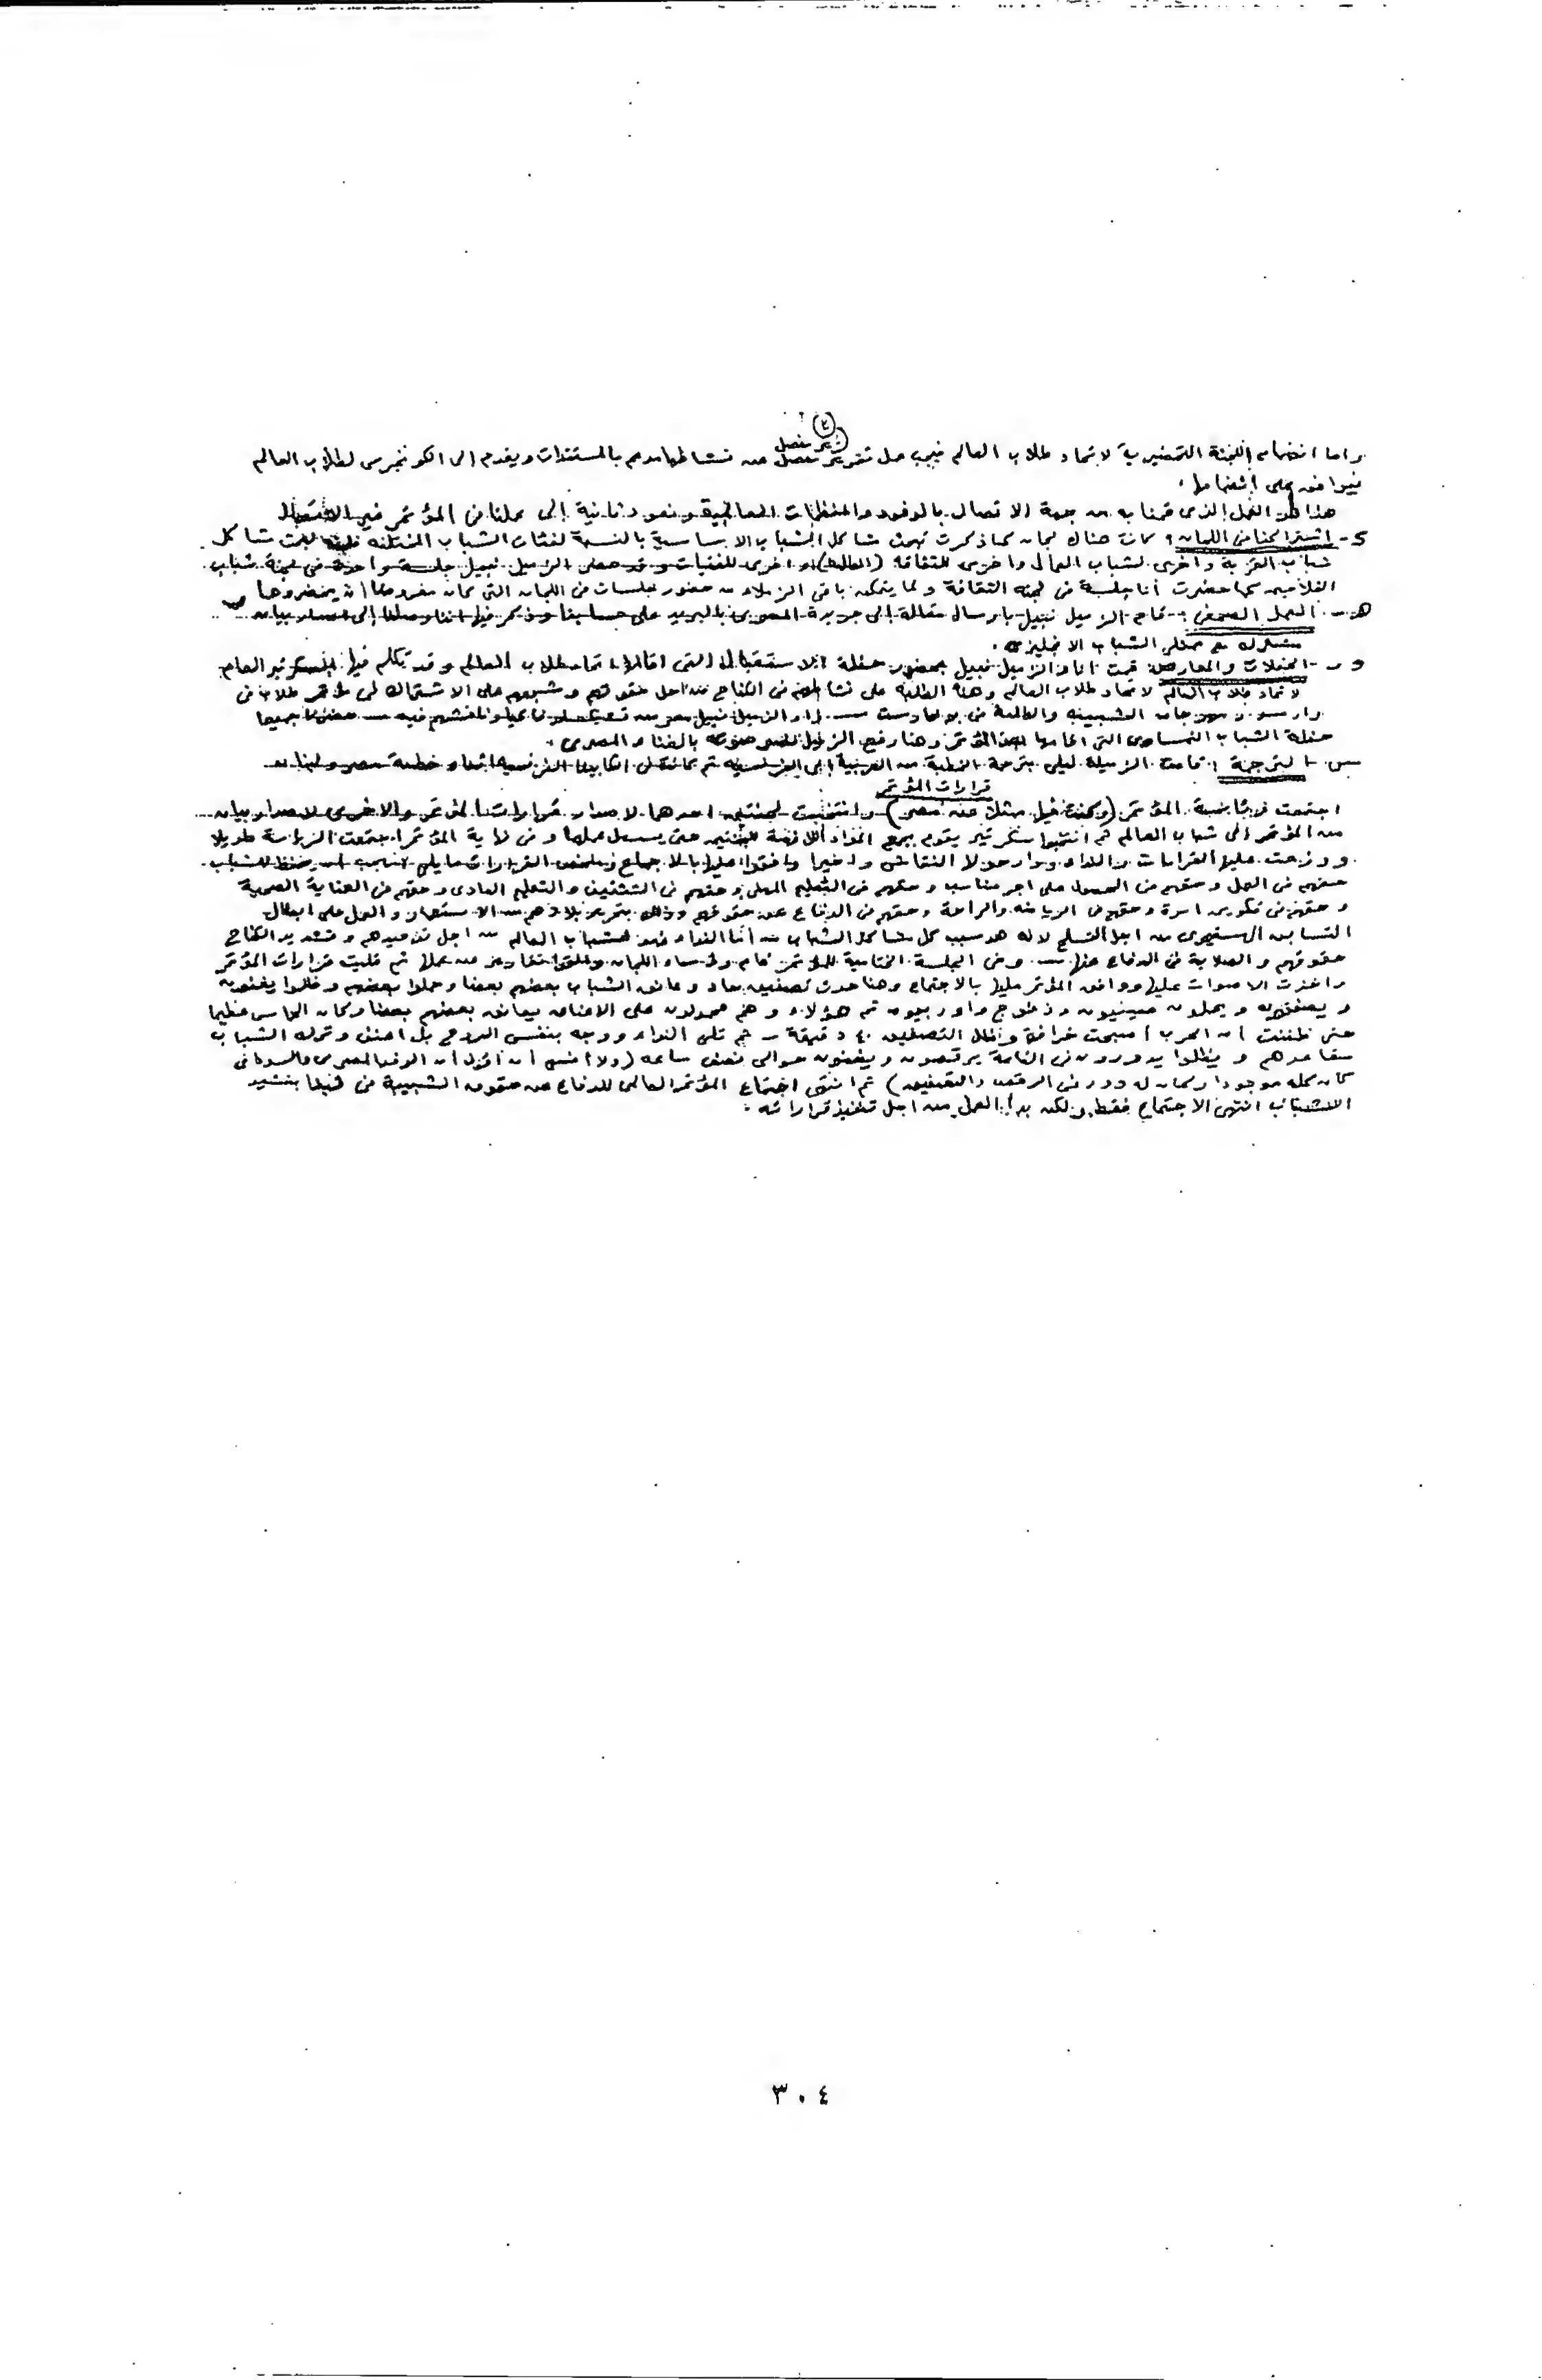 ٢
تقرير مفصل
واما انضمام اللجنة التحضيرية لاتحاد طلاب العالم فيجب عمل تقرير مفصل عن نشاطها مدعم بالمستندات ويقدم الى الكونجرس لطلاب العالم
فيوافق على انضمامها .
هذا هو العمل الذى قمنا به من جهة الاتصال بالوفود والمنظمات العالمية ونعود ثانية إلى عملنا فى المؤتمر غير الاتصال
د - اشتراكنا فى اللجان : كانت هناك لجان كما ذكرت تبحث مشاكل الشباب الاساسية بالنسبة لفئات الشباب المختلفة مشاكل
شباب القرية واخرى لشباب العمال واخرى للثقافة (الطلبة) واخرى للفتيات وقد حضر الزميل نبيل جلسة واحدة فى لجنة شباب
الفلاحين كما حضرت أنا جلسة فى لجنة الثقافة ولم يتمكن باقى الزملاء من حضور جلسات فى اللجان التى كان مفروضا أن يحضروها
هـ - العمل الصحفى : قام الزميل نبيل بارسال مقالة إلى جريدة المصرى بالبريد على حسابنا وذكر فيها اننا وصلنا إلى اصدار بيان
مشترك مع ممثلى الشباب الانجليزى .
و - الحفلات والمعارض : قمت انا والزميل نبيل بحضور حفلة الاستقبال التى اقامها اتحاد طلاب العالم وقد تكلم فيها السكرتير العام
لاتحاد طلاب العالم لاتحاد طلاب العالم وهنأ الطلبة على نشاطهم فى الكفاح من اجل حقوقهم وشجعهم على الاشتراك فى مؤتمر طلاب فى
وارسو ومهرجان الشبيبة والطلبة فى بوخارست — حضرنا جميعا
حفلة الشباب النمساوى التى اقامها لهذا المؤتمر وهنا رفع الزميل صوته بالغناء المصرى .
س - الترجمة : قامت الزميلة ليلى بترجمة الخطبة من العربية إلى الفرنسية
قرارات المؤتمر
اجتمعت رئاسة المؤتمر (وكنت عن مصر) وانتخبت لجنتين احدهما لاصدار قرارات المؤتمر والاخرى لاصدار بيان
من المؤتمر الى شباب العالم ثم انتخبوا سكرتير يقوم بجمع المواد اللازمة للجنتين حتى يسهل عملها وفى نهاية المؤتمر اجتمعت الرئاسة طويلا
ووزعت عليها القرارات والنداء ودار حولها النقاش واخيرا وافقوا عليها بالاجماع وملخص القرارات ما يلى للشباب
حقهم فى العمل وحقهم فى الحصول على اجر مناسب وحقهم فى التعليم المهنى وحقهم فى التثقيف والتعليم العادى وحقهم فى العناية الصحية
وحقهم فى تكوين اسرة وحقهم فى الرياضة والراحة وحقهم فى الدفاع عن حقوقهم وذلك بتحرير بلادهم من الاستعمار والعمل على ابطال
التسابق من اجل التسلح لانه هو سبب كل مشاكل الشباب — أما النداء فهو لشباب العالم من اجل توحيدهم وتشديد الكفاح
حقوقهم والصلابة فى الدفاع عنها — وفى الجلسة الختامية للمؤتمر قام رؤساء اللجان والقوا تقارير عن عملها ثم تليت قرارات المؤتمر
واخذت الاصوات عليها ووافق المؤتمر عليها بالاجماع وهنا حدث تصفيق حاد وعانق الشباب بعضهم بعضا وحملوا بعضهم وظلوا يغنون
ويصفقون ويحملون صينيون وزنوج واوربيون ثم هؤلاء وهم محمولون على الاعناق يعانق بعضهم بعضا وكان الحماس عظيما
حتى ظننت أن الحرب أصبحت خرافة وظل التصفيق ٤٠ دقيقة — ثم تلى النداء ووجه بنفس الروح بل اعنف وترك الشباب
مقاعدهم وظلوا يدورون فى القاعة يرقصون ويغنون حوالى نصف ساعه (ولا انسى أن اقول أن الوفد المصرى والسودانى
كان كله موجودا وكان له دور فى الرقص والتصفيق) ثم انتهى اجتماع المؤتمر العالمى للدفاع عن حقوق الشبيبة فى فيينا بنشيد
الشباب انتهى الاجتماع فقط ولكن بدأ العمل من اجل تنفيذ قراراته .
٣٠٤